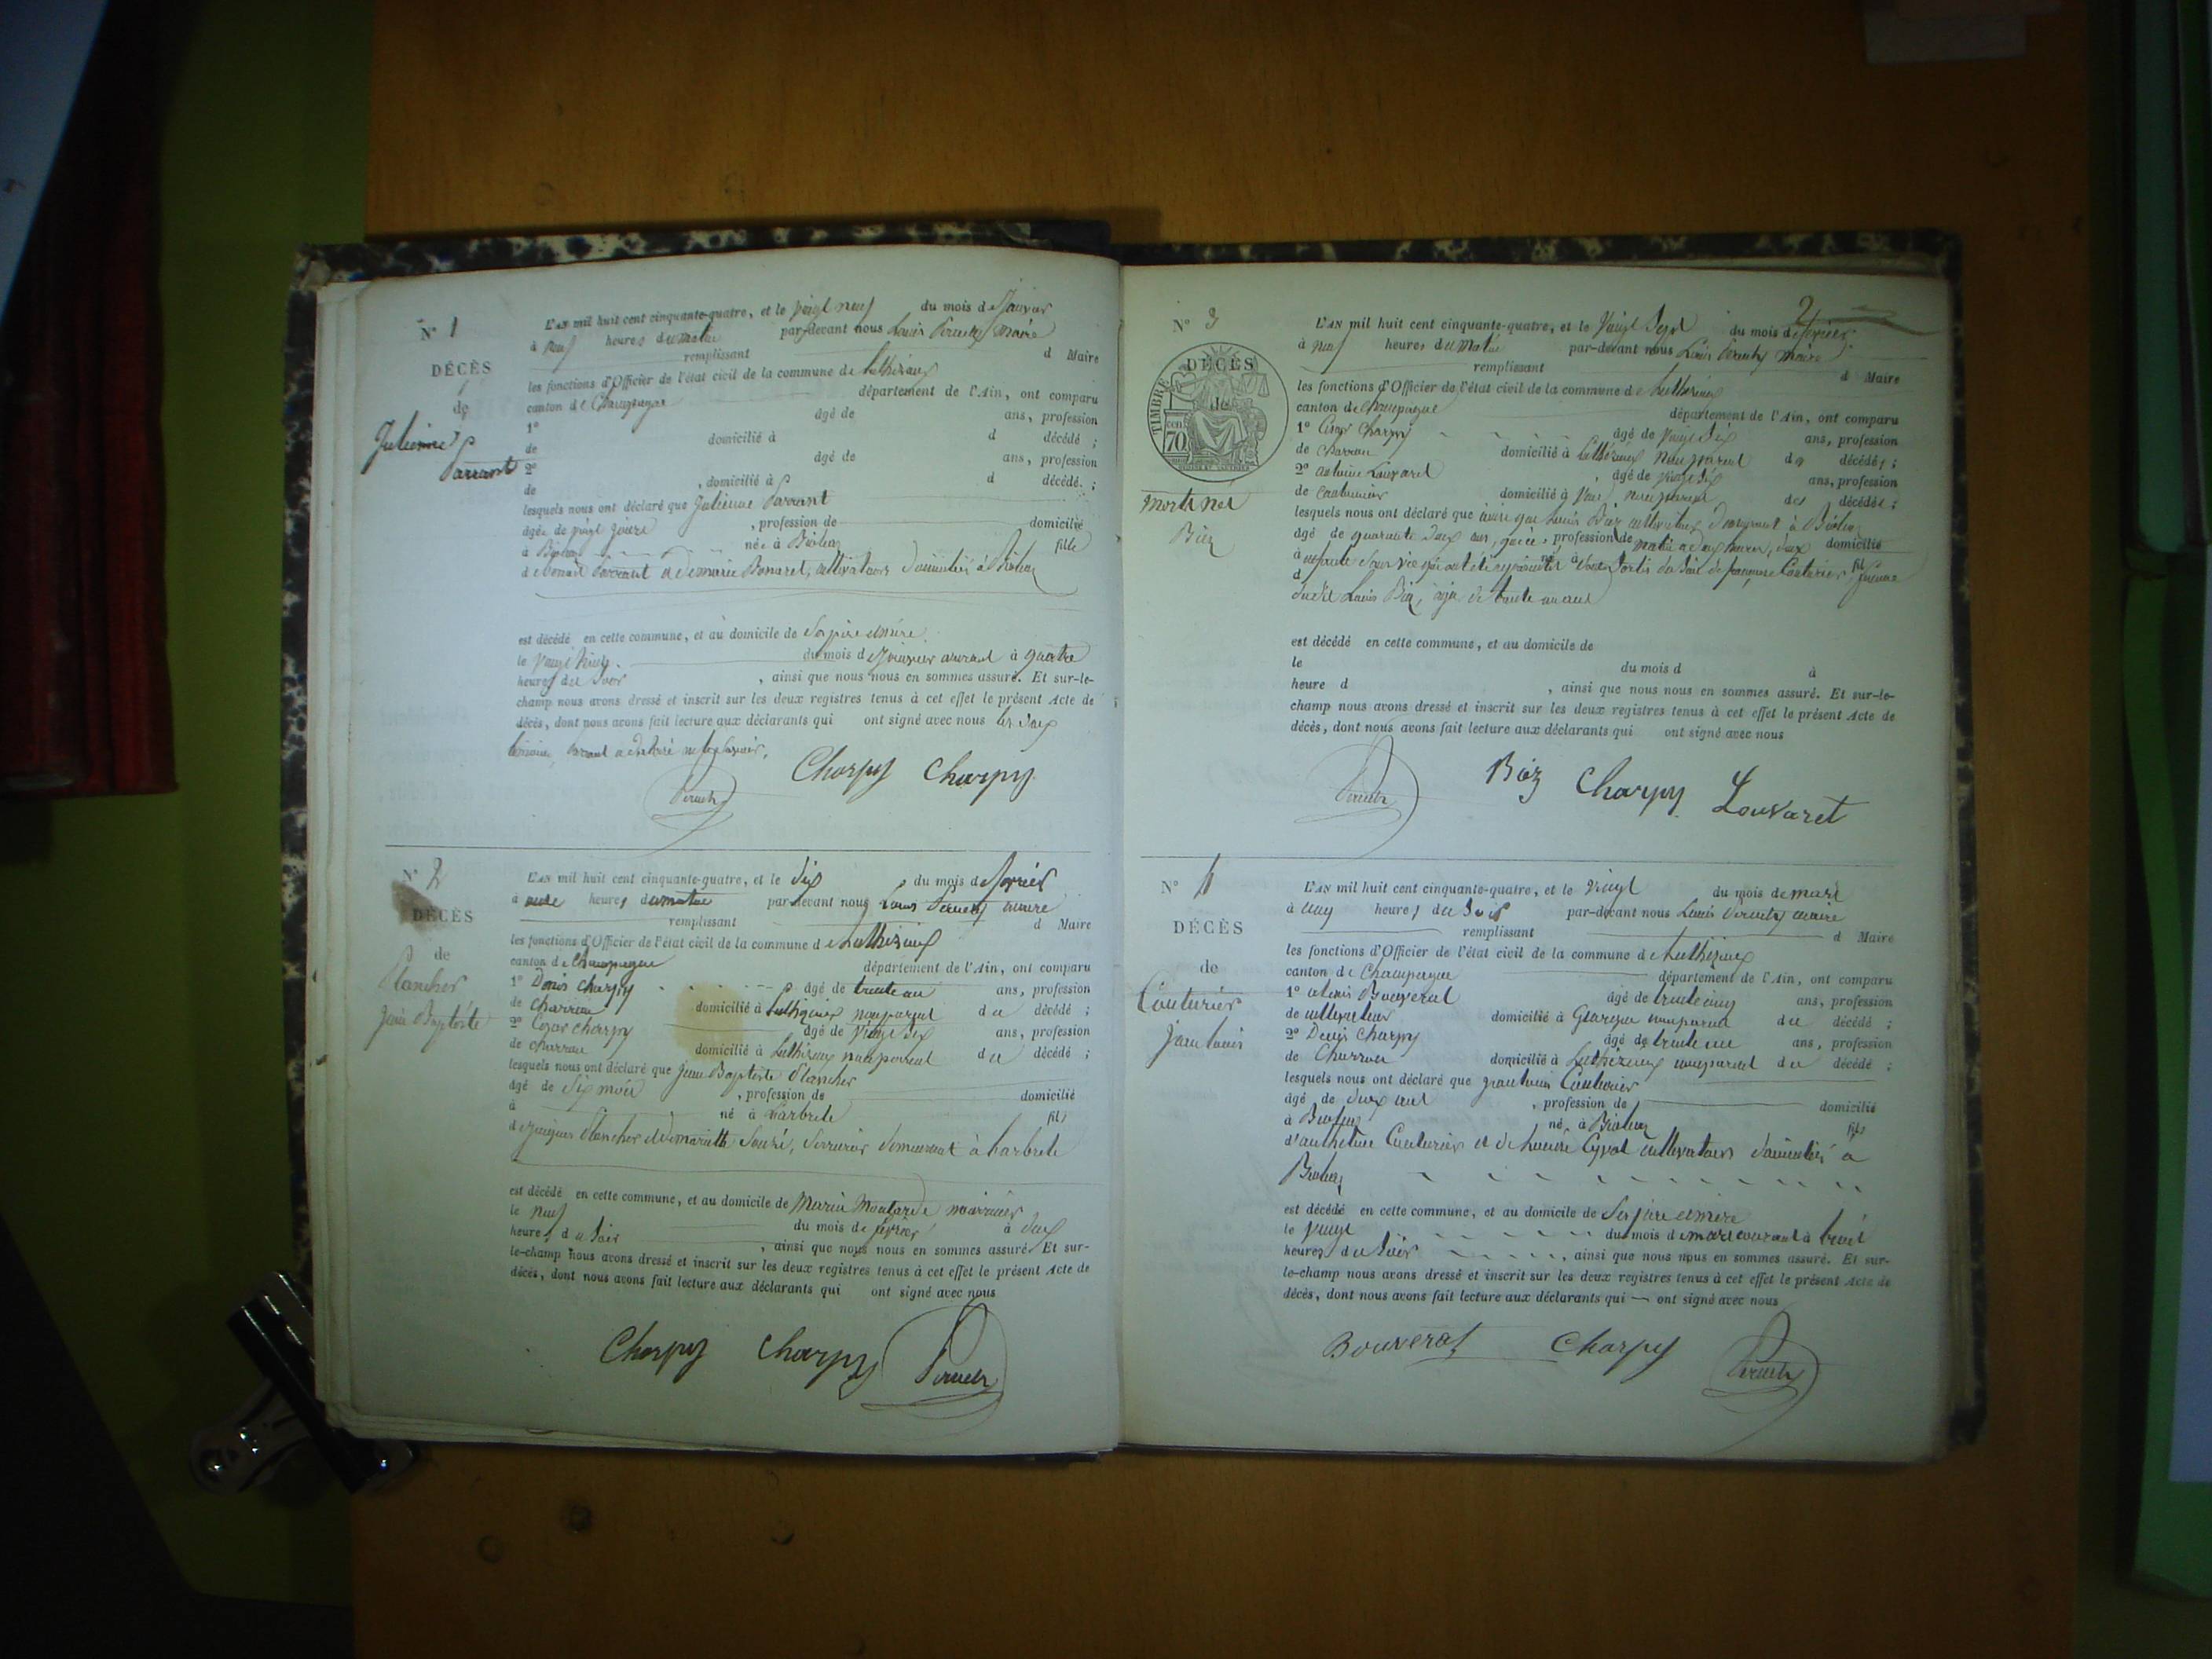 N° 1
DÉCÈS
de
Julienne
Parrant
L'AN mil huit cent cinquante-quatre, et le vingt neuf du mois de Janvier
à neuf heures du matin par-devant nous Louis maire
remplissant d Maire
les fonctions d'Officier de l'état civil de la commune de Luthézieu
canton de Champagne département de l'Ain, ont comparu
1° âgé de ans, profession
de domicilié à d décédé ;
2° âgé de ans, profession
de , domicilié à d décédé. ;
lesquels nous ont déclaré que Julienne Parrant
âgée de vingt jours , profession de domicilié
à née à fille
de Parrant et de marie cultivateurs domiciliés à
est décédé en cette commune, et au domicile de Ses père et mère
le vingt du mois de Janvier courant à quatre
heures du Soir , ainsi que nous nous en sommes assuré. Et sur-le-
champ nous avons dressé et inscrit sur les deux registres tenus à cet effet le présent Acte de
décès, dont nous avons fait lecture aux déclarants qui ont signé avec nous les deux
témoins a déclaré ne le savoir.
Charpy Charpy
N° 2
DÉCÈS
de
Plancher
Jean Baptiste
L'AN mil huit cent cinquante-quatre, et le dix du mois de février
à onze heures du matin par-devant nous Louis maire
remplissant d Maire
les fonctions d'Officier de l'état civil de la commune de Luthézieu
canton de Champagne département de l'Ain, ont comparu
1° Denis Charpy âgé de trente un ans, profession
de charron domicilié à Luthézieu non parent du décédé ;
2° César Charpy âgé de vingt six ans, profession
de charron domicilié à Luthézieu non parent du décédé ;
lesquels nous ont déclaré que Jean Baptiste Plancher
âgé de Six mois , profession de domicilié
à né à Larbrele fils
de Plancher et de mariette demeurant à Larbrele
est décédé en cette commune, et au domicile de Marie Moutarde nourrice
le neuf du mois de février à deux
heures du Soir , ainsi que nous nous en sommes assuré. Et sur-
le-champ nous avons dressé et inscrit sur les deux registres tenus à cet effet le présent Acte de
décès, dont nous avons fait lecture aux déclarants qui ont signé avec nous
Charpy Charpy
2
N° 3
DÉCÈS
TIMBRE
70
morts nés
Biez
L'AN mil huit cent cinquante-quatre, et le vingt Sept du mois de février
à neuf heures du matin par-devant nous Louis maire
remplissant d Maire
les fonctions d'Officier de l'état civil de la commune de Luthézieu
canton de Champagne département de l'Ain, ont comparu
1° César Charpy âgé de vingt Six ans, profession
de charron domicilié à Luthézieu non parent des décédés ;
2° antoine Louvaret âgé de ans, profession
de domicilié à non parent des décédés ;
lesquels nous ont déclaré que ainsi que Louis Biez cultivateur demeurant à
âgé de quarante deux ans, profession de matin a deux heures, deux domicilié
à enfants Sans vie qui ont été né à Sortis du Sein de Couturier fil femme
d
dudit Louis Biez, âgée de trente un ans
est décédé en cette commune, et au domicile de
le du mois d à
heure d , ainsi que nous nous en sommes assuré. Et sur-le-
champ nous avons dressé et inscrit sur les deux registres tenus à cet effet le présent Acte de
décès, dont nous avons fait lecture aux déclarants qui ont signé avec nous
Biez Charpy Louvaret
N° 4
DÉCÈS
de
Couturier
Jean louis
L'AN mil huit cent cinquante-quatre, et le vingt du mois de mars
à cinq heures du Soir par-devant nous Louis maire
remplissant d Maire
les fonctions d'Officier de l'état civil de la commune de Luthézieu
canton de Champagne département de l'Ain, ont comparu
1° Bouverat âgé de trente cinq ans, profession
de cultivateur domicilié à non parent du décédé ;
2° Denis Charpy âgé de trente un ans, profession
de Charron domicilié à Luthézieu non parent du décédé ;
lesquels nous ont déclaré que Jean louis Couturier
âgé de deux ans , profession de domicilié
à né à fils
d'anthelme Couturier et de cultivateurs domiciliés à
est décédé en cette commune, et au domicile de Ses père et mère
le vingt du mois de mars courant à trois
heures du Soir , ainsi que nous nous en sommes assuré. Et sur-
le-champ nous avons dressé et inscrit sur les deux registres tenus à cet effet le présent Acte de
décès, dont nous avons fait lecture aux déclarants qui ont signé avec nous
Bouverat Charpy